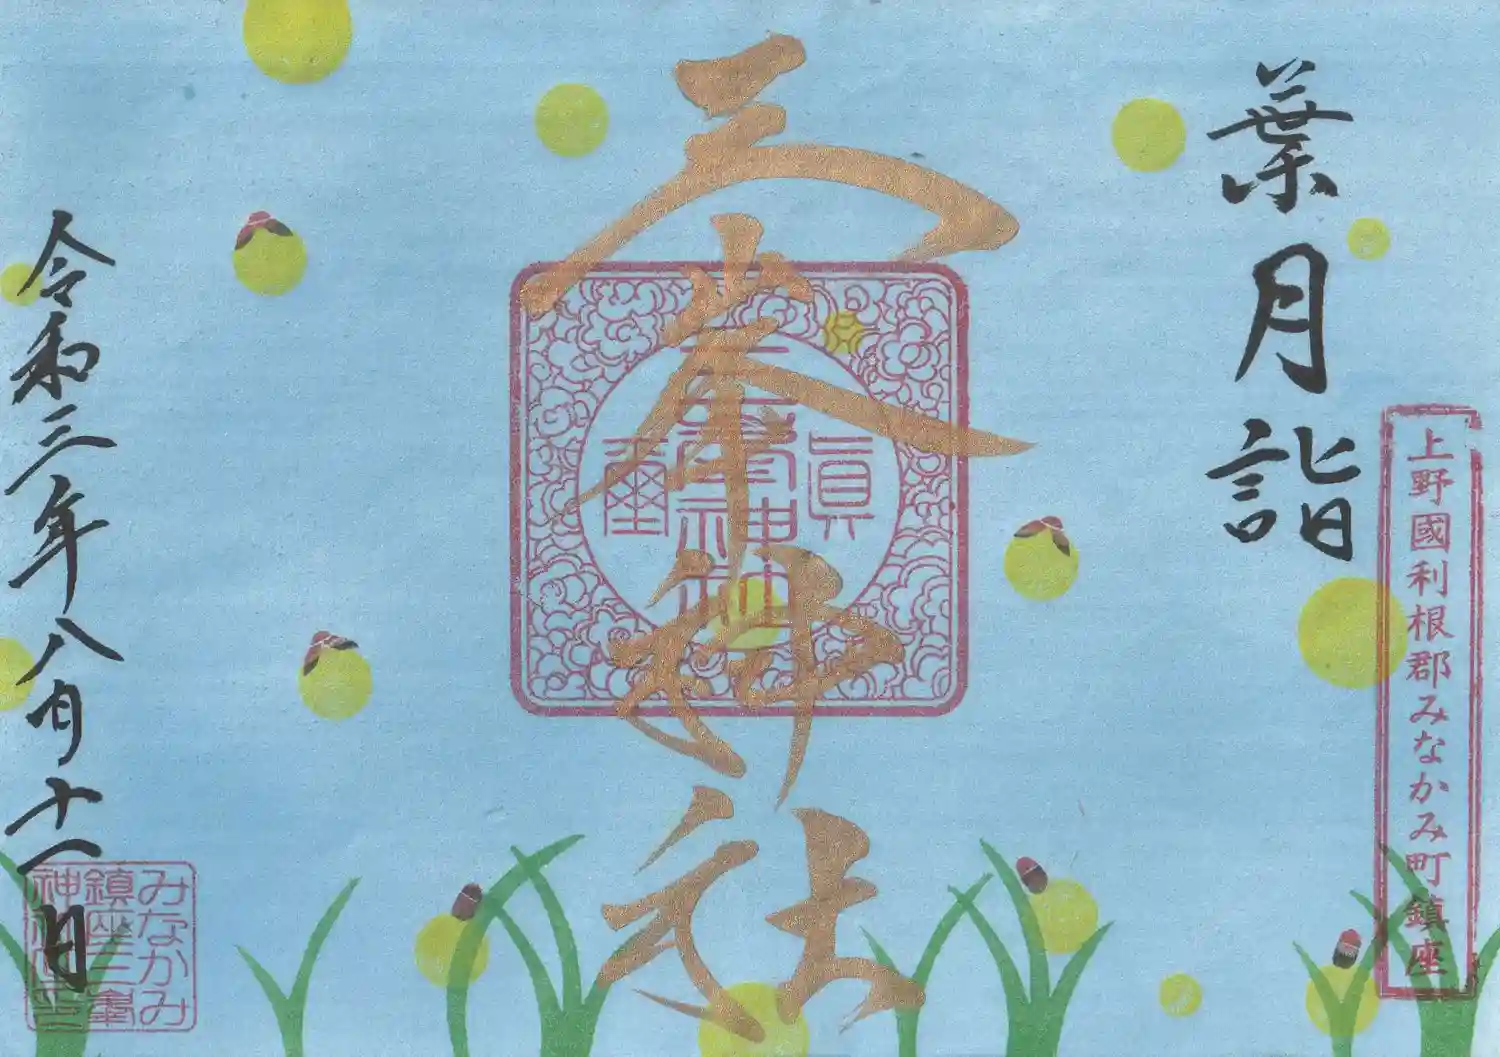 葉月詣
上野國利根郡みなかみ町鎮座
三峯神社
眞
三峯神社
璽
令和三年八月十一日
みなかみ
鎮座三峯
神社之印